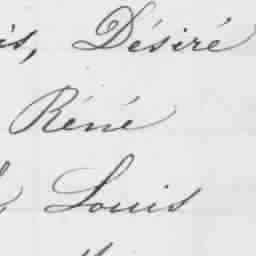 is, Désiré
Réné
Louis